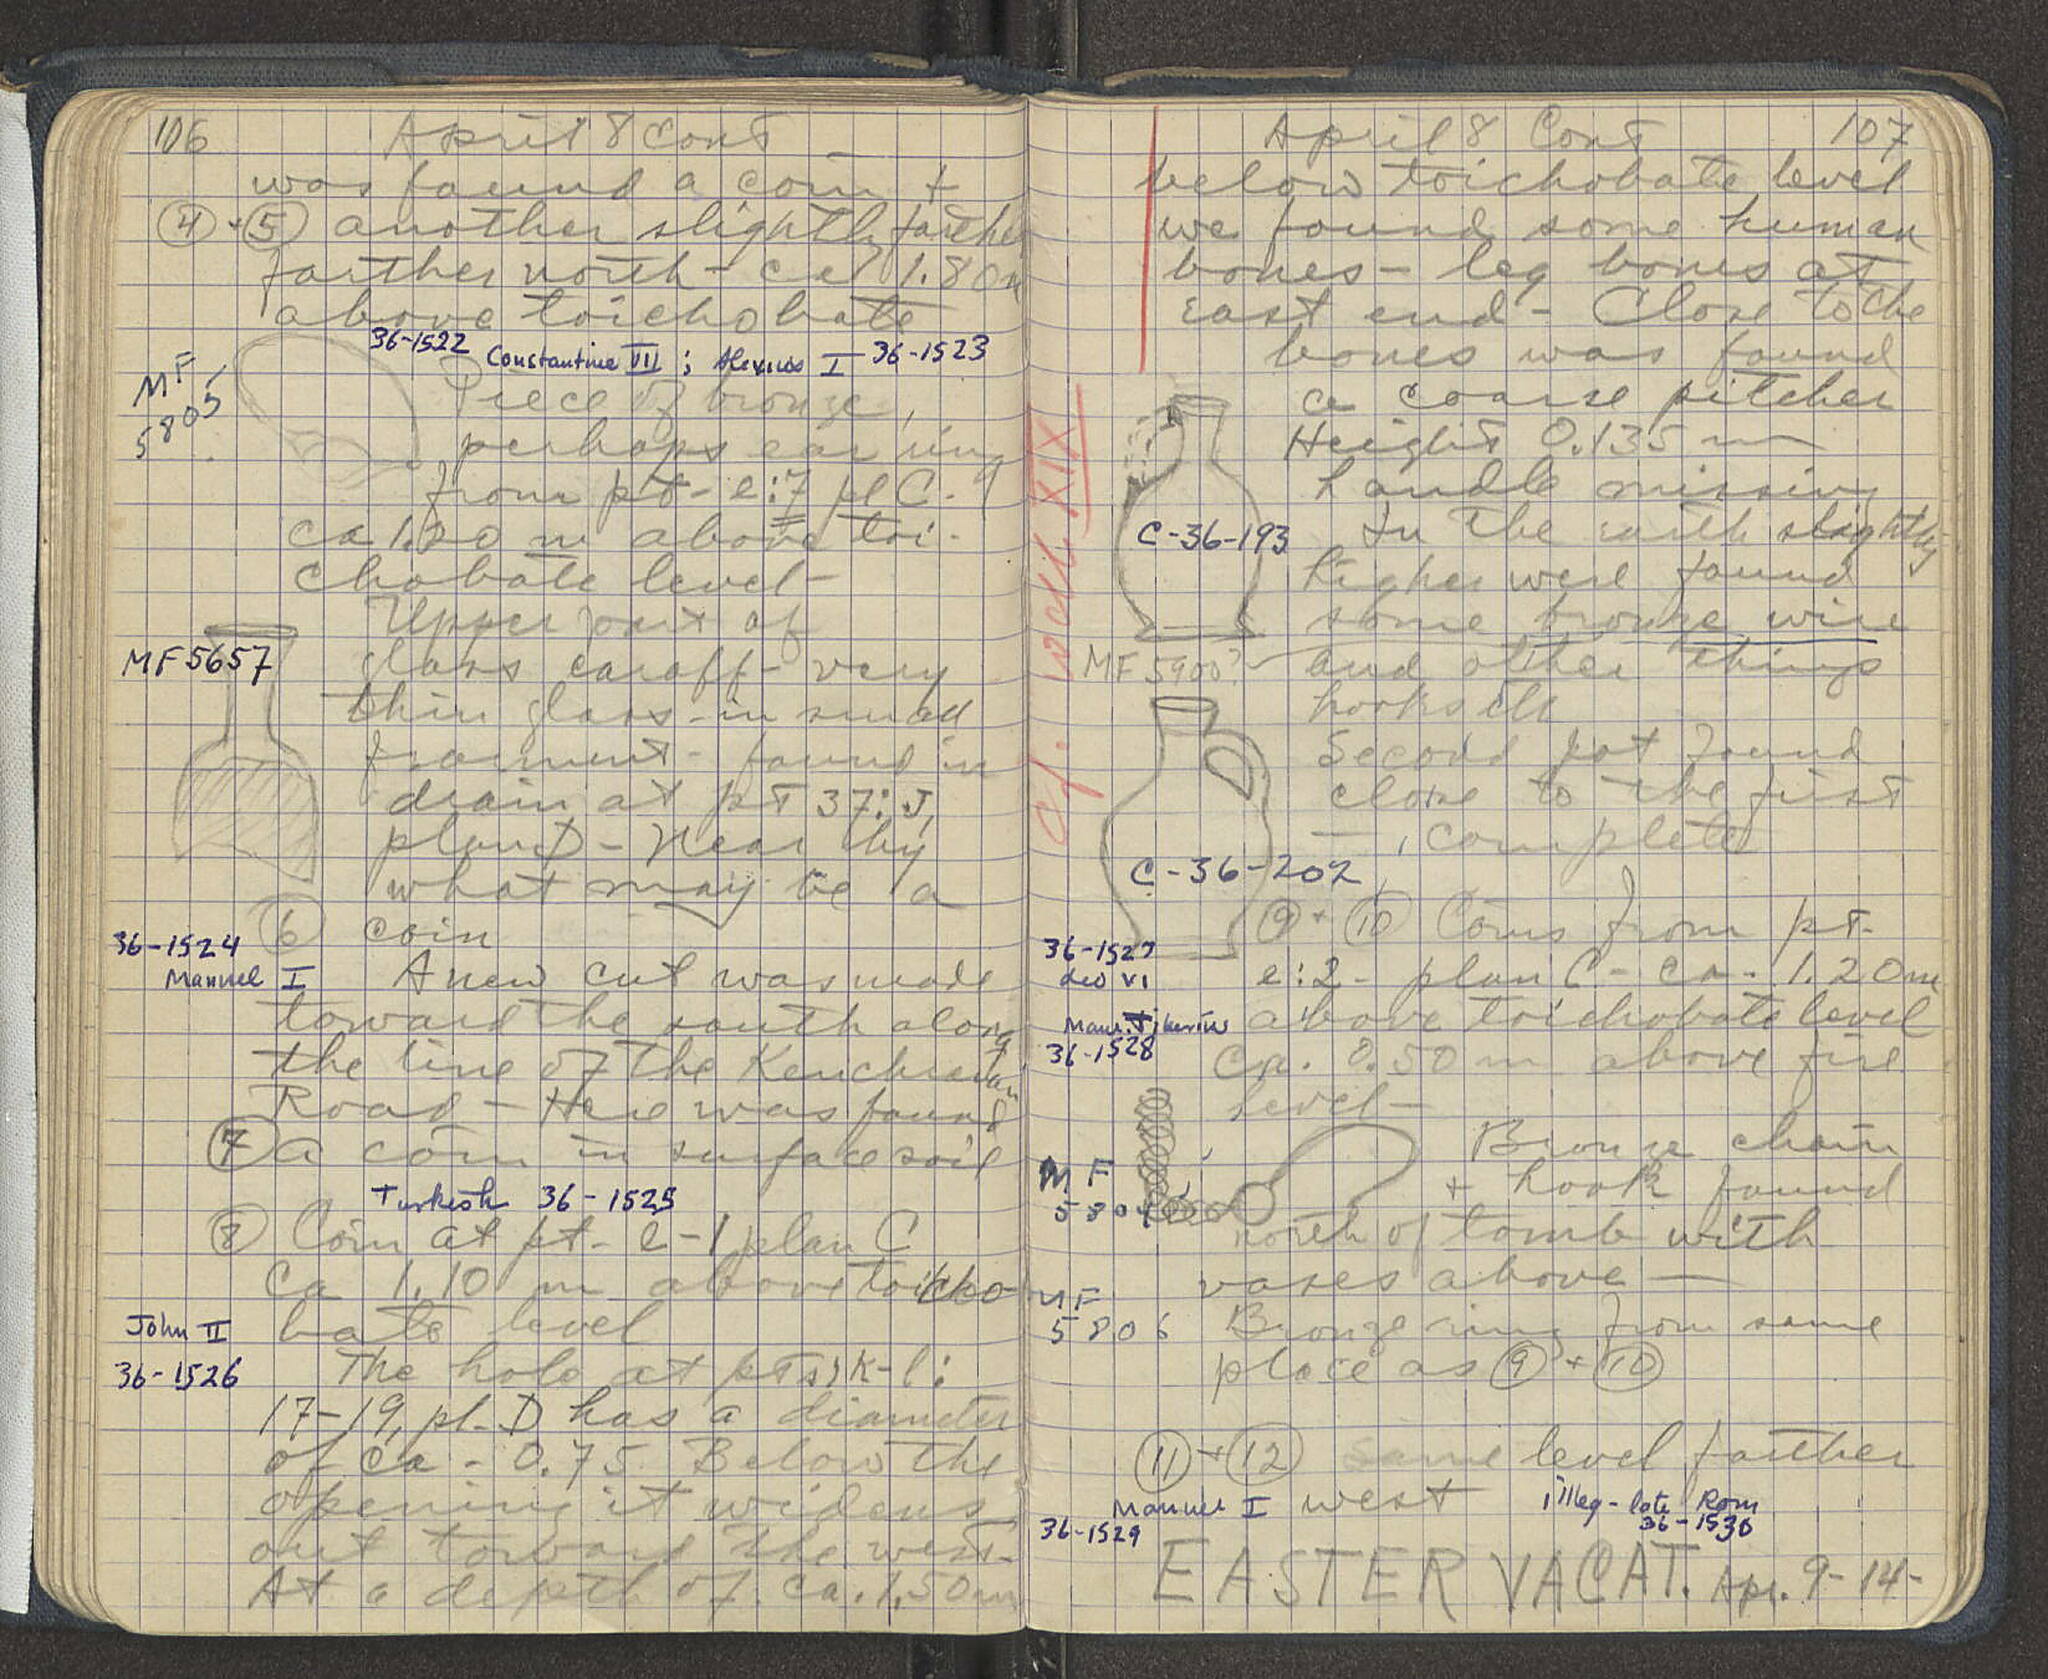 106 April 8 Cont
was found a coin +
④ + ⑤ another slightly farther
farther north - ca 1.80 m
above toichobate
36-1522 Constantine VII ; Alexius I 36-1523
MF
5805
Piece of bronze,
perhaps ear ring
from pt - e:7 pl C.
ca 1.20 m above toi-
chobate level -
Upper part of
MF 5657
glass caraff - very
thin glass - in small
fragment - found in
drain at pt 37:J,
plan D - Near by
what may be a
⑥ coin
36-1524
Manuel I
A new cut was made
toward the south along
the line of the Kenchraian
Road - Here was found
⑦ a coin in surface soil
Turkish 36-1525
⑧ Coin at pt - e-1 plan C
Ca 1.10 m above toicho-
bate level
John II
36-1526
The hole at pts K-l:
17-19, pl. D has a diameter
of ca - 0.75 Below the
opening it widens
out toward the west.
At a depth of ca. 1.50 m
April 8 Cont 107
below toichobate level
we found some human
bones - leg bones at
east end - Close to the
bones was found
a coarse pitcher
Height 0.135 m
handle missing
C-36-193
In the earth slightly
higher were found
some bronze wire
MF 5900?
and other things
hooks etc
Second pot found
close to the first
— , complete
C-36-202
cf. vol. XIX
⑨ + ⑩ Coins from pt.
36-1527
Leo VI
e:2 - plan C - ca - 1.20 m
above toichobate level
Maur. Tiberius
36-1528
Ca. 0.50 m above fire
level -
MF
5804
Bronze chain
+ hook found
north of tomb with
vases above —
MF
5806
Bronze ring from same
place as ⑨ + ⑩
⑪ + ⑫ same level farther
west
Manuel I
36-1529
illeg - late Rom
36-1530
EASTER VACAT. Apr. 9-14-